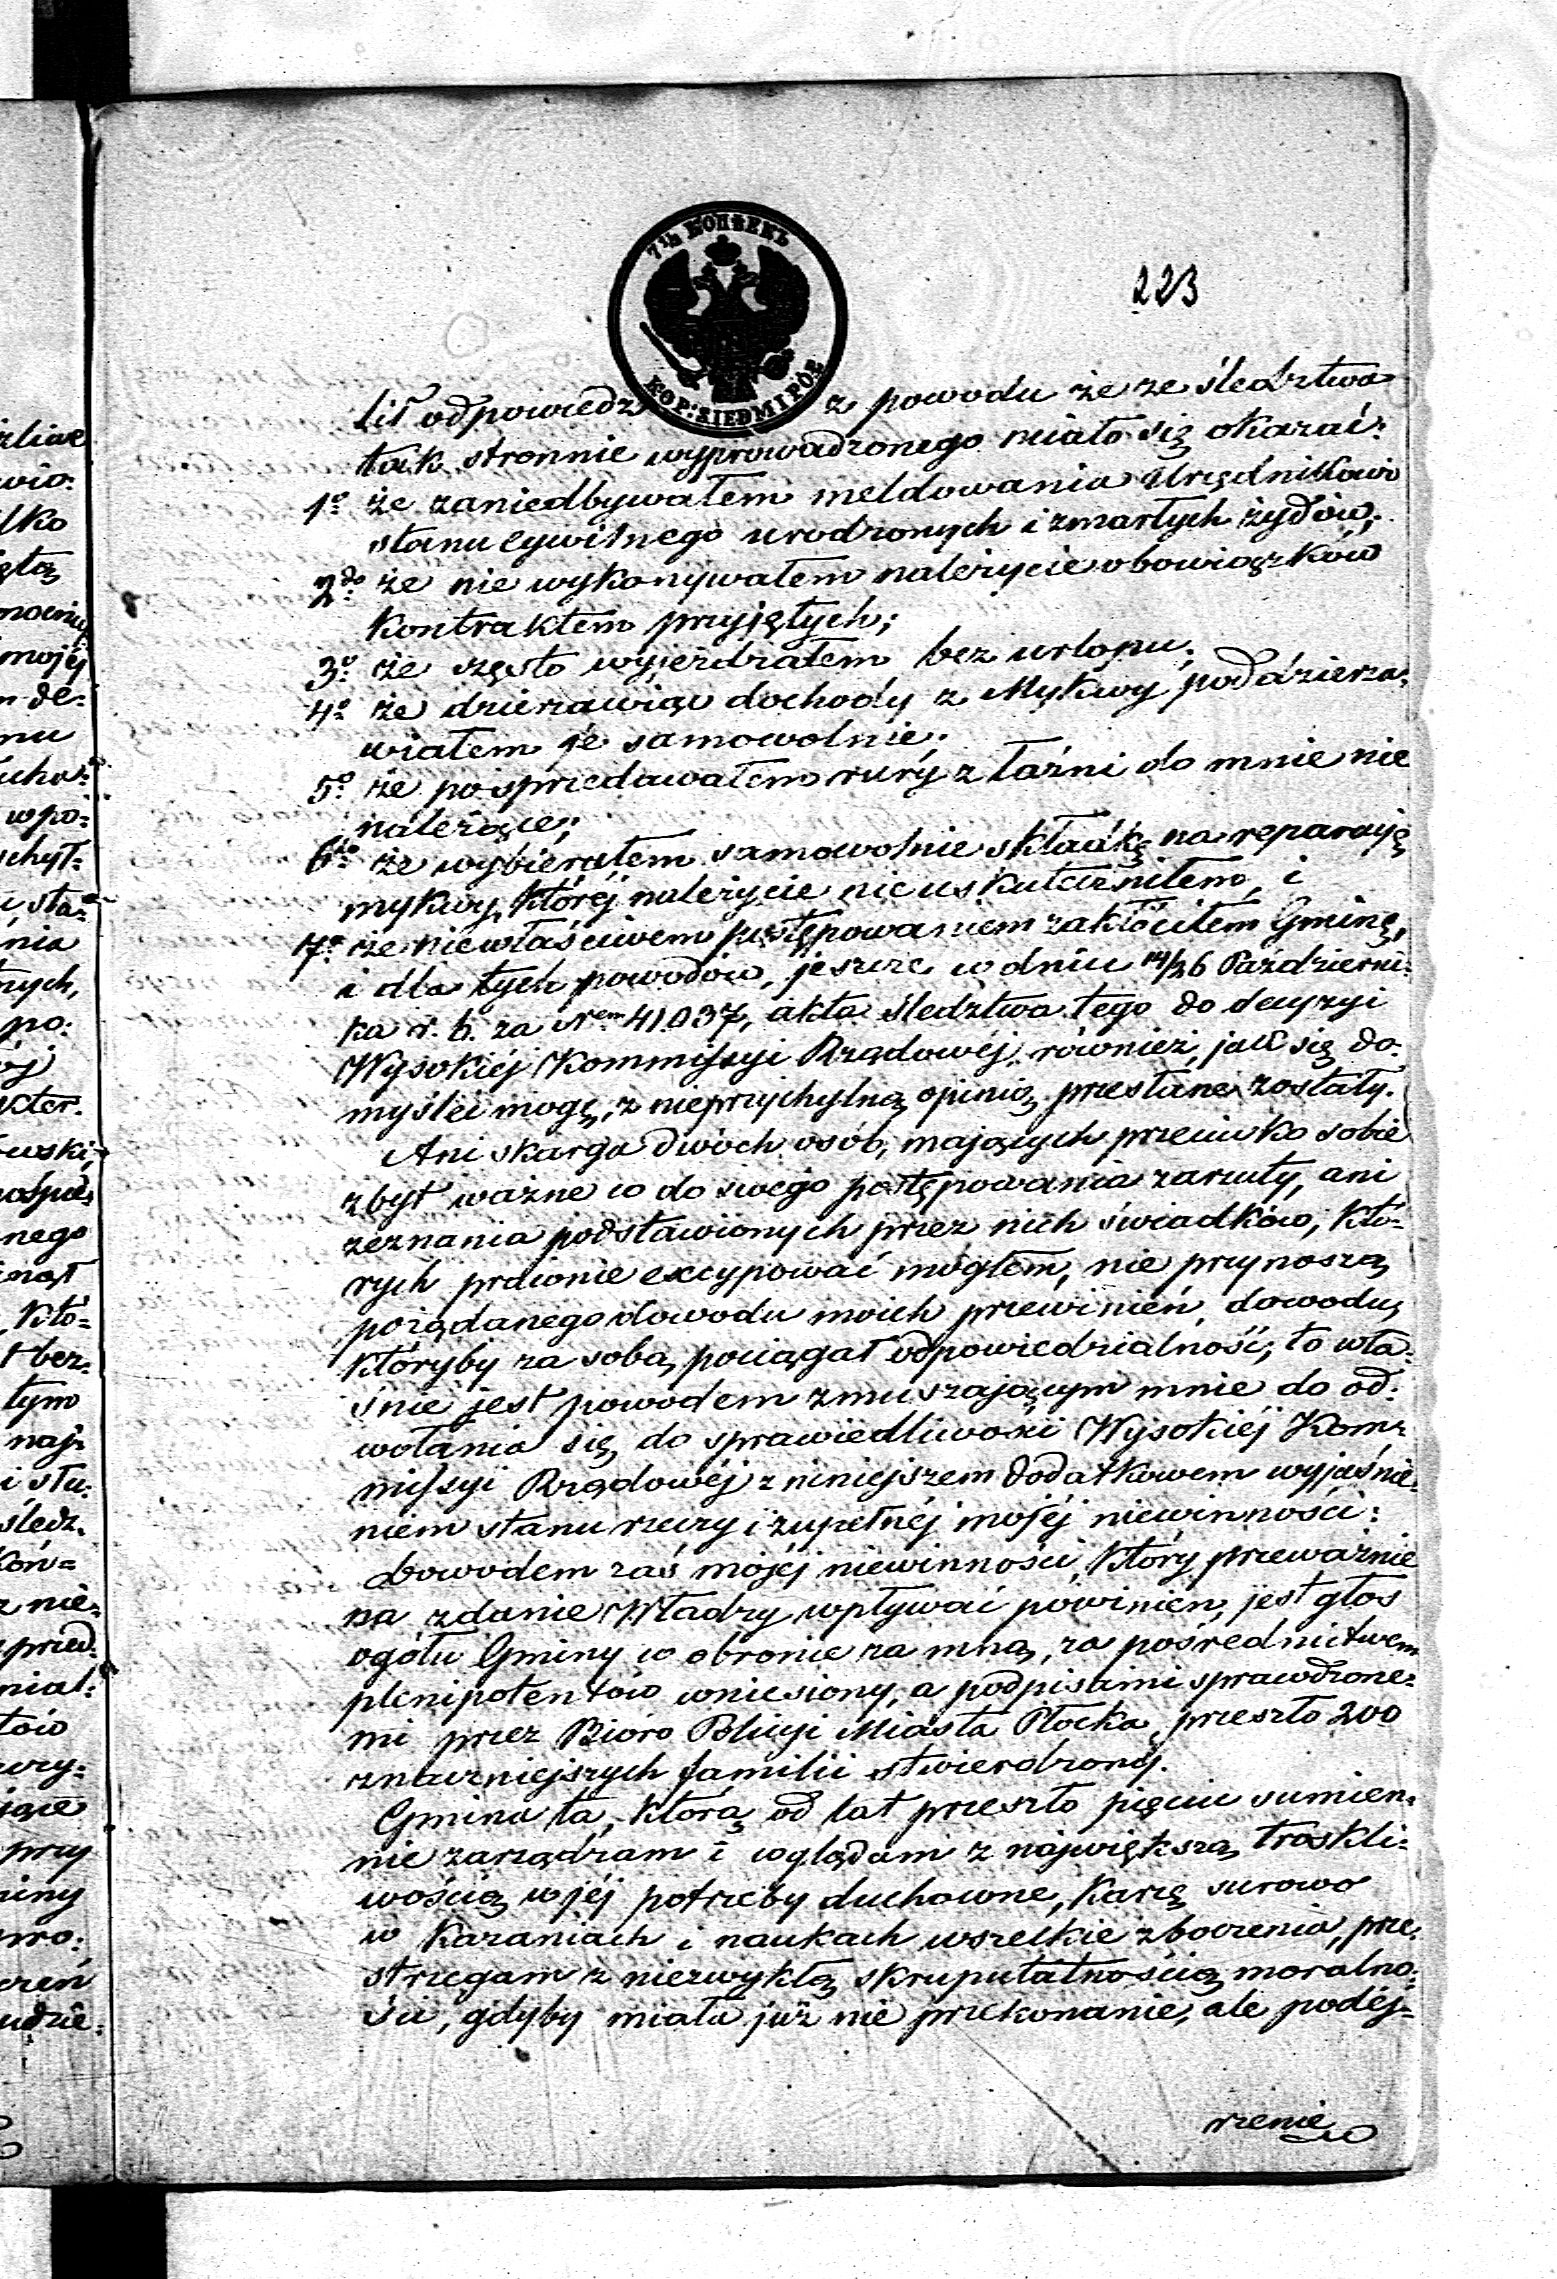 7½ КОПѢЕКЪ
KOP: SIEDM I PÓŁ
223
lił odpowiedz z powodu że ze śledztwa
tak stronnie wyprowadzonego miało się okazać:
1o że zaniedbywałem meldowania Urzędnikowi
stanu cywilnego urodzonych i zmarłych żydów;
2do że nie wykonywałem należycie obowiązków
kontraktem przyjętych;
3o że często wyjeżdżałem bez urlopu;
4o że dzierżawiąc dochody z Mykwy poddzierża-
wiałem je samowolnie;
5o że posprzedawałem rury z łaźni do mnie nie
należące;
6to że wybierałem samowolnie składkę na reparacyę
mykwy, której należycie nie uskuteczniłem, i
7o że niewłaściwem postępowaniem zakłóciłem Gminę,
i dla tych powodów, jeszcze w dniu 14/26 Październi-
ka r. b. za Nrem 41037, akta śledztwa tego do decyzyi
Wysokiéj Kommissyi Rządowéj, również, jak się do-
myśleć mogę, z nieprzychylną opinią przesłane zostały.
Ani skarga dwóch osób, mających przeciwko sobie
zbyt ważne co do swego postępowania zarzuty, ani
zeznania podstawionych przez nich świadków, któ-
rych prawnie excypować mogłem, nie przynoszą
pożądanego dowodu moich przewinień, dowodu,
któryby za sobą pociągał odpowiedzialność; to wła-
śnie jest powodem zmuszającym mnie do od-
wołania się do sprawiedliwości Wysokiéj Kom-
missyi Rządowéj z niniejszem dodatkowem wyjaśnie-
niem stanu rzeczy i zupełnéj mojéj niewinności:
Dowodem zaś mojéj niewinności, który przeważnie
na zdanie Władzy wpływać powinien, jest głos
ogółu Gminy w obronie za mną, za pośrednictwem
plenipotentów wniesiony, a podpisami sprawdzone-
mi przez Bióro Policyi Miasta Płocka, przeszło 200
znaczniejszych familii stwierdzony.
Gmina ta, którą od lat przeszło pięciu sumien-
nie zarządzam i wglądam z największą troskli-
wością w jéj potrzeby duchowne, karzę surowo
w kazaniach i naukach wszelkie zboczenia, prze-
strzegam z niezwykłą skrupulatnością moralno-
ści, gdyby miała już nie przekonanie, ale podéj-
rzenie